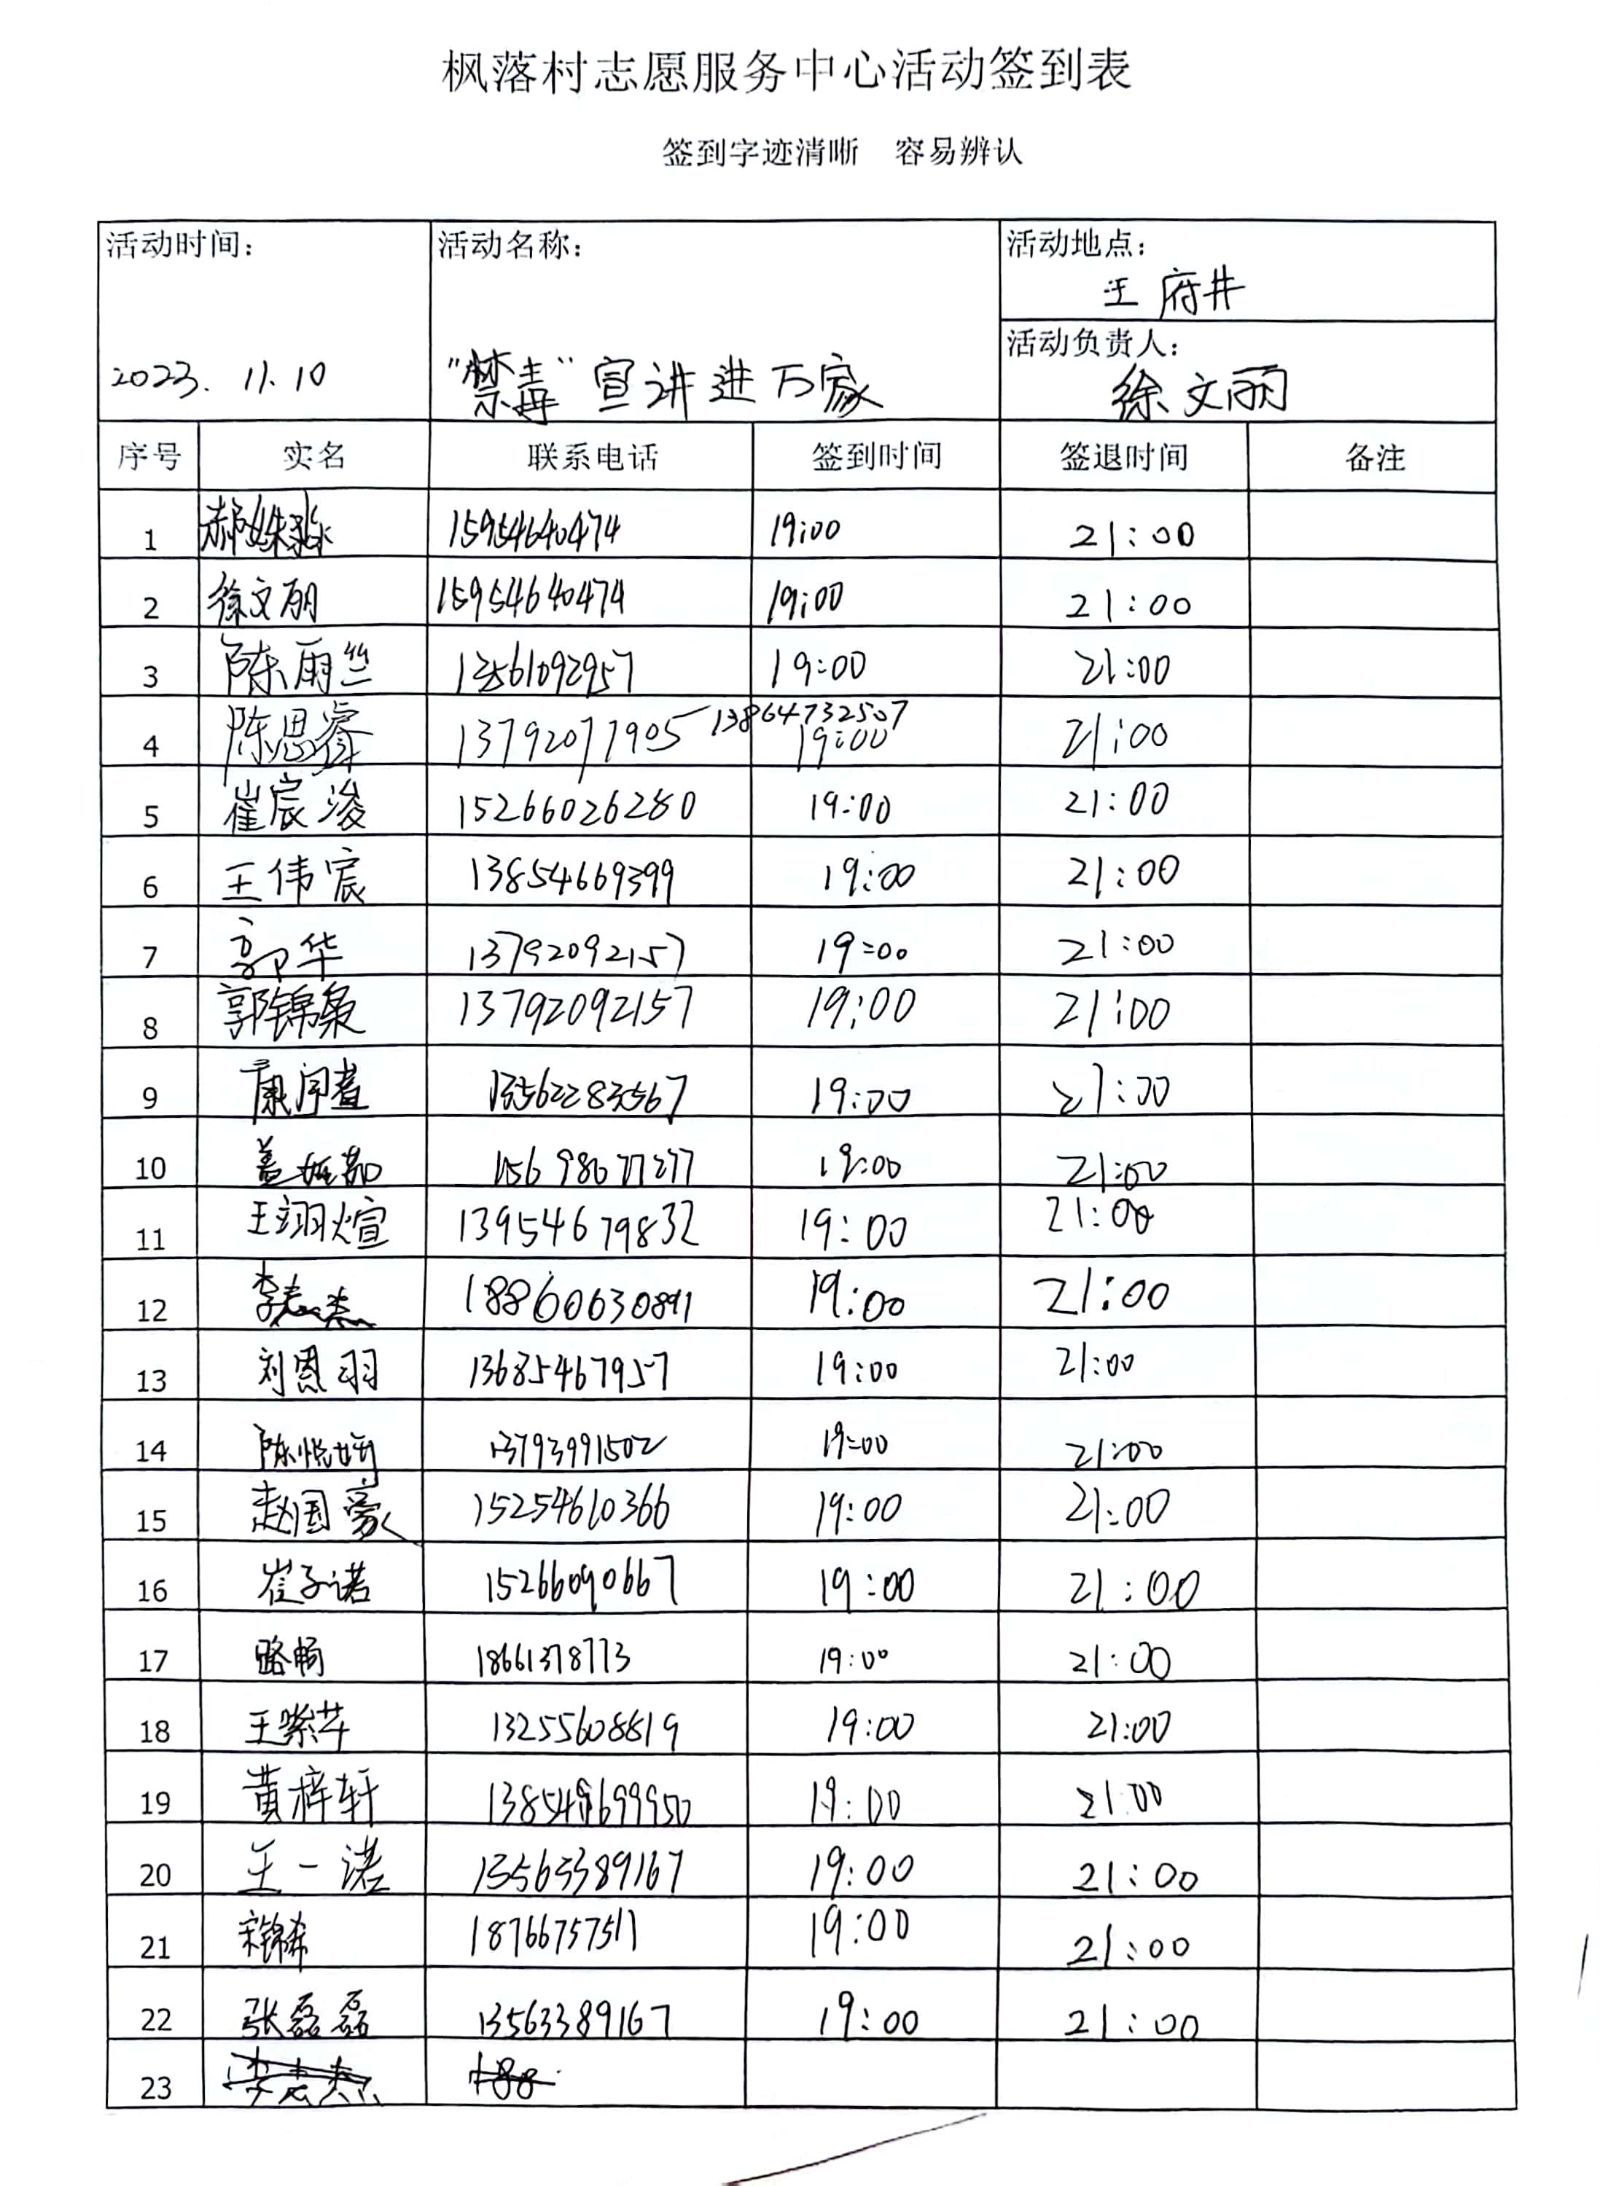 枫落村志愿服务中心活动签到表
签到字迹清晰 容易辨认
活动时间: 活动名称: 活动地点:
王府井
活动负责人:
2023.11.10 "禁毒"宣讲进万家 徐文丽
序号 实名 联系电话 签到时间 签退时间 备注
1 郝姝 15954640474 19:00 21:00
2 徐文丽 15954640474 19:00 21:00
3 陈雨竺 13561092957 19:00 21:00
4 陈思睿 13792077905 13864732507 19:00 21:00
5 崔宸浚 15266026280 19:00 21:00
6 王伟宸 13854669399 19:00 21:00
7 郭华 13792092157 19:00 21:00
8 郭锦枭 13792092157 19:00 21:00
9 康 13562283567 19:00 21:00
10 盖 15698677277 19:00 21:00
11 王翊煊 13954679832 19:00 21:00
12 李志杰 18860630891 19:00 21:00
13 刘恩羽 13685467957 19:00 21:00
14 陈悦 13793991502 19:00 21:00
15 赵国豪 15254610366 19:00 21:00
16 崔子诺 15266090667 19:00 21:00
17 路畅 18661378773 19:00 21:00
18 王紫苹 13255608819 19:00 21:00
19 黄梓轩 19:00 21:00
20 王一诺 13563389167 19:00 21:00
21 宋锦希 18766757511 19:00 21:00
22 张磊磊 13563389167 19:00 21:00
23 李志杰 188